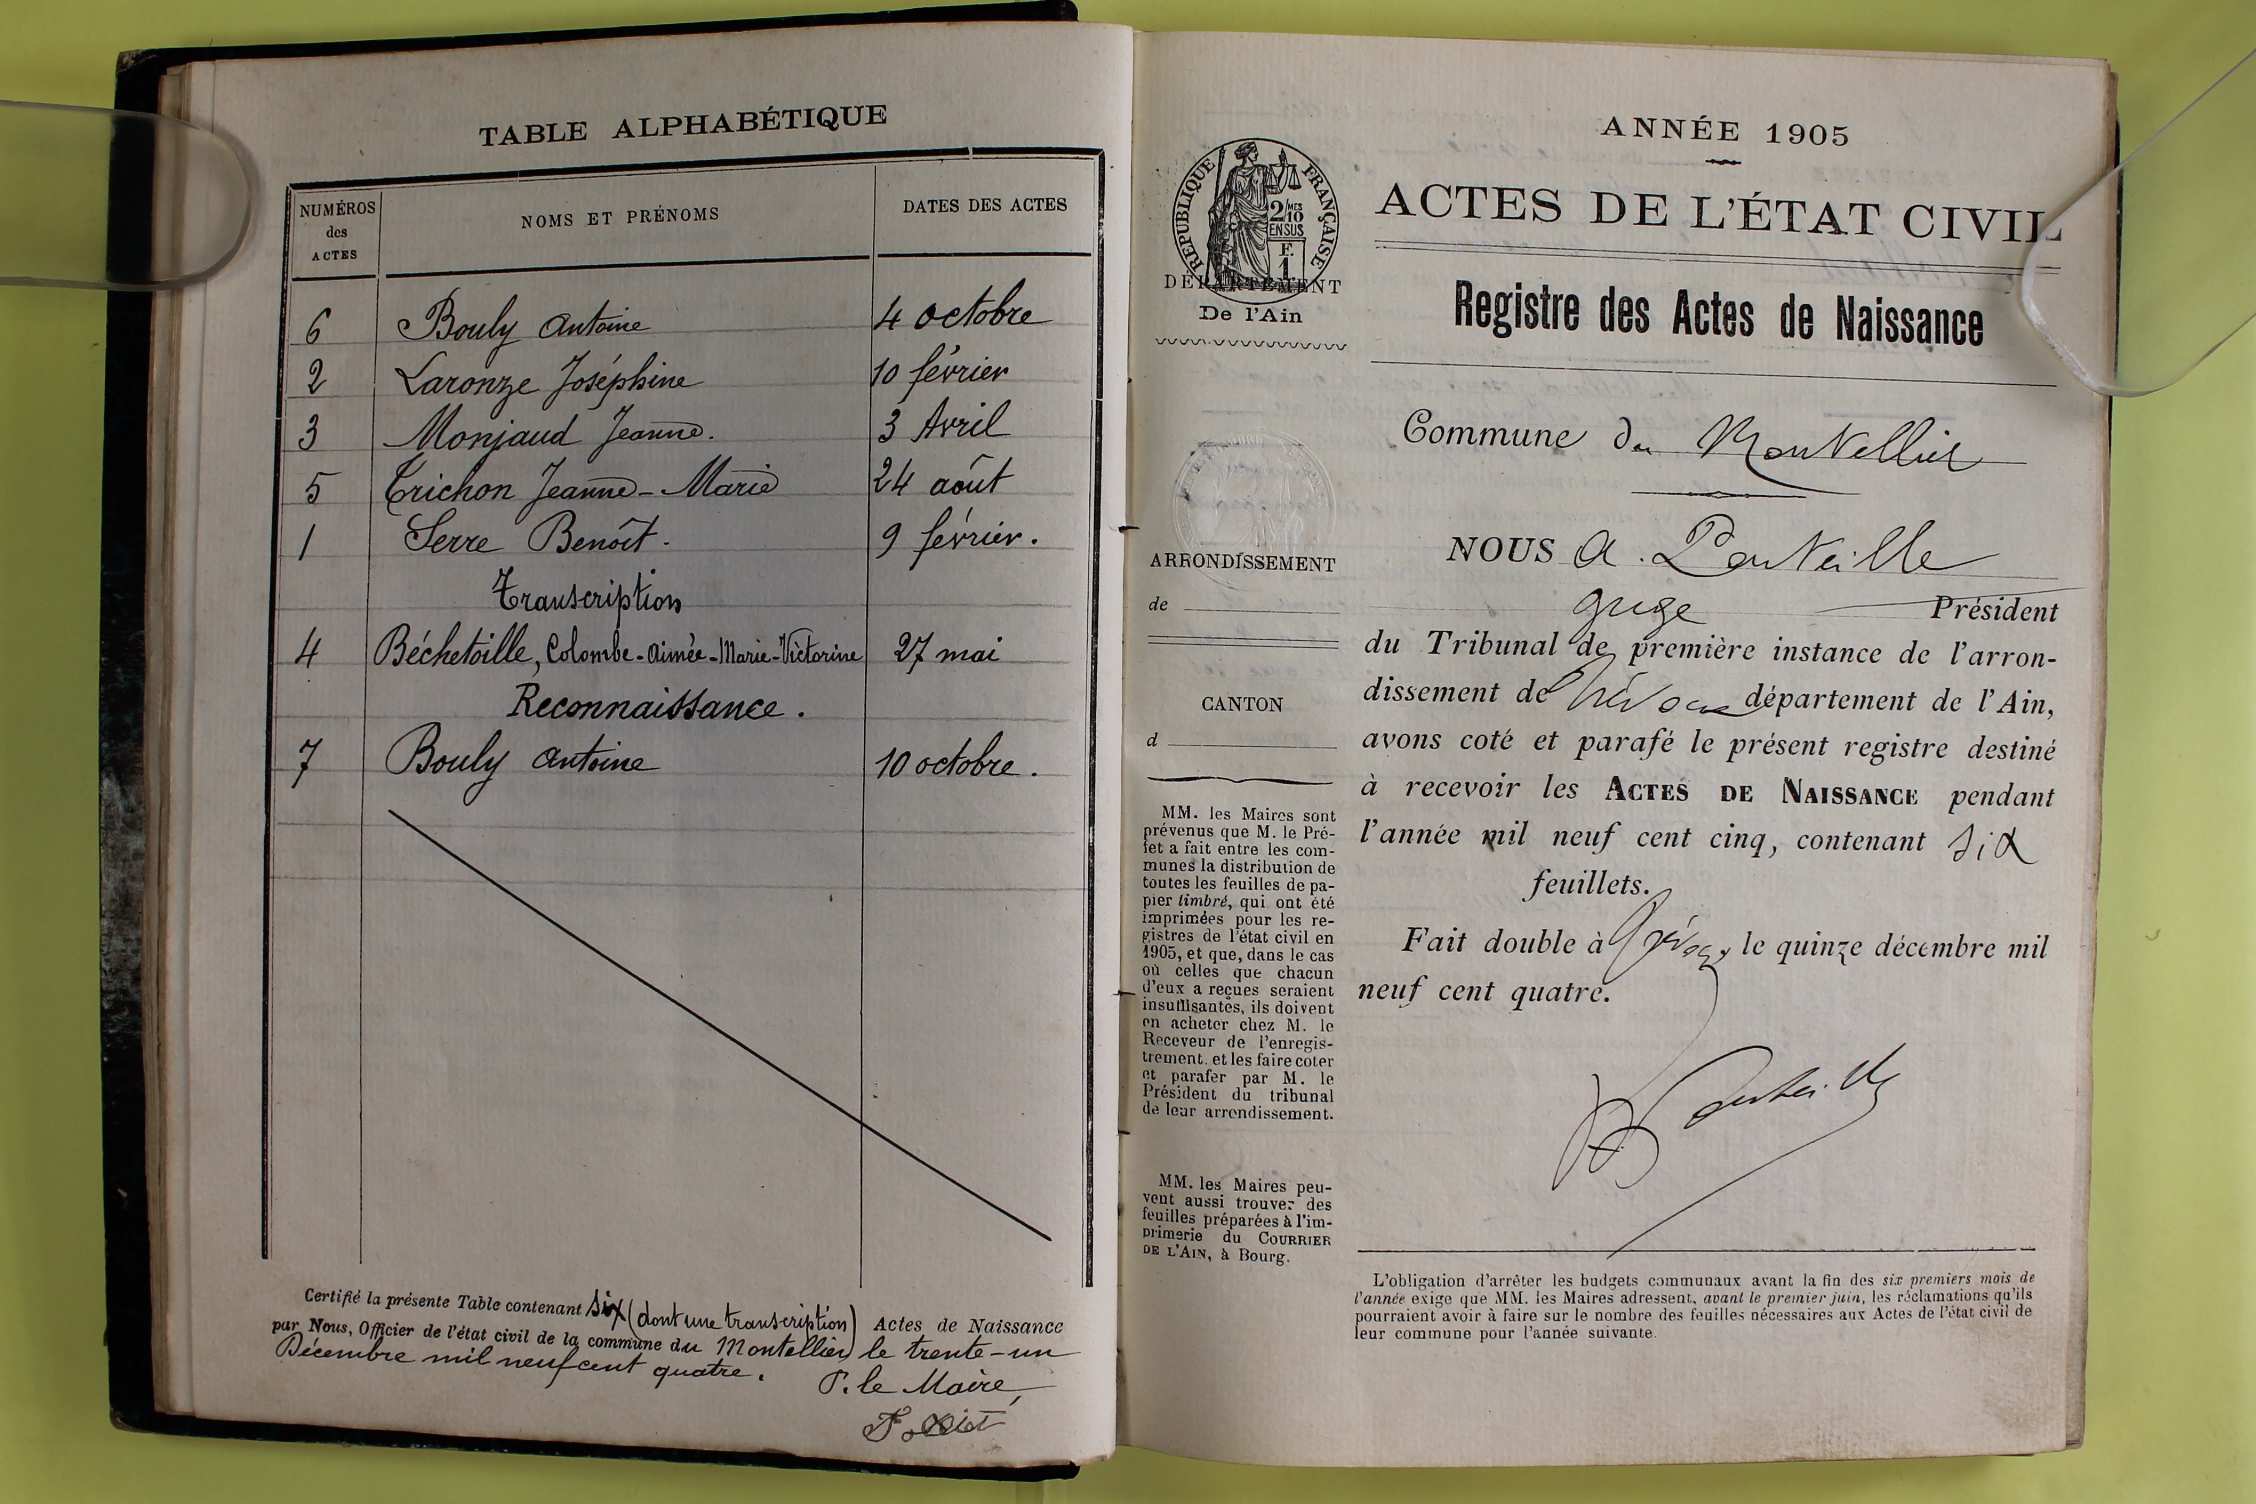 TABLE ALPHABÉTIQUE
NUMÉROS
des
ACTES
NOMS ET PRÉNOMS
DATES DES ACTES
6 Bouly Antoine 4 octobre
2 Laronze Joséphine 10 février
3 Monjaud Jeanne. 3 Avril
5 Trichon Jeanne-Marie 24 août
1 Serre Benoît. 9 février.
Transcription
4 Béchetoille, Colombe-Aimée-Marie-Victorine 27 mai
Reconnaissance.
7 Bouly Antoine 10 octobre.
Certifié la présente Table contenant six (dont une transcription) Actes de Naissance
par Nous, Officier de l'état civil de la commune du Montellier le trente-un
Décembre mil neuf cent quatre.
P. le Maire,
ANNÉE 1905
ACTES DE L'ÉTAT CIVIL
Registre des Actes de Naissance
RÉPUBLIQUE FRANÇAISE
2 MES
10
EN SUS
F.
1
DÉPARTEMENT
De l'Ain
Commune du Montellier
NOUS A. Ponteille
juge Président
du Tribunal de première instance de l'arron-
dissement de Trévoux département de l'Ain,
avons coté et parafé le présent registre destiné
à recevoir les ACTES DE NAISSANCE pendant
l'année mil neuf cent cinq, contenant six
feuillets.
Fait double à Trévoux, le quinze décembre mil
neuf cent quatre.
Ponteille
ARRONDISSEMENT
de
CANTON
d
MM. les Maires sont
prévenus que M. le Pré-
fet a fait entre les com-
munes la distribution de
toutes les feuilles de pa-
pier timbré, qui ont été
imprimées pour les re-
gistres de l'état civil en
1905, et que, dans le cas
où celles que chacun
d'eux a reçues seraient
insuffisantes, ils doivent
en acheter chez M. le
Receveur de l'enregis-
trement et les faire coter
et parafer par M. le
Président du tribunal
de leur arrondissement.
MM. les Maires peu-
vent aussi trouver des
feuilles préparées à l'im-
primerie du COURRIER
DE L'AIN, à Bourg.
L'obligation d'arrêter les budgets communaux avant la fin des six premiers mois de
l'année exige que MM. les Maires adressent, avant le premier juin, les réclamations qu'ils
pourraient avoir à faire sur le nombre des feuilles nécessaires aux Actes de l'état civil de
leur commune pour l'année suivante.